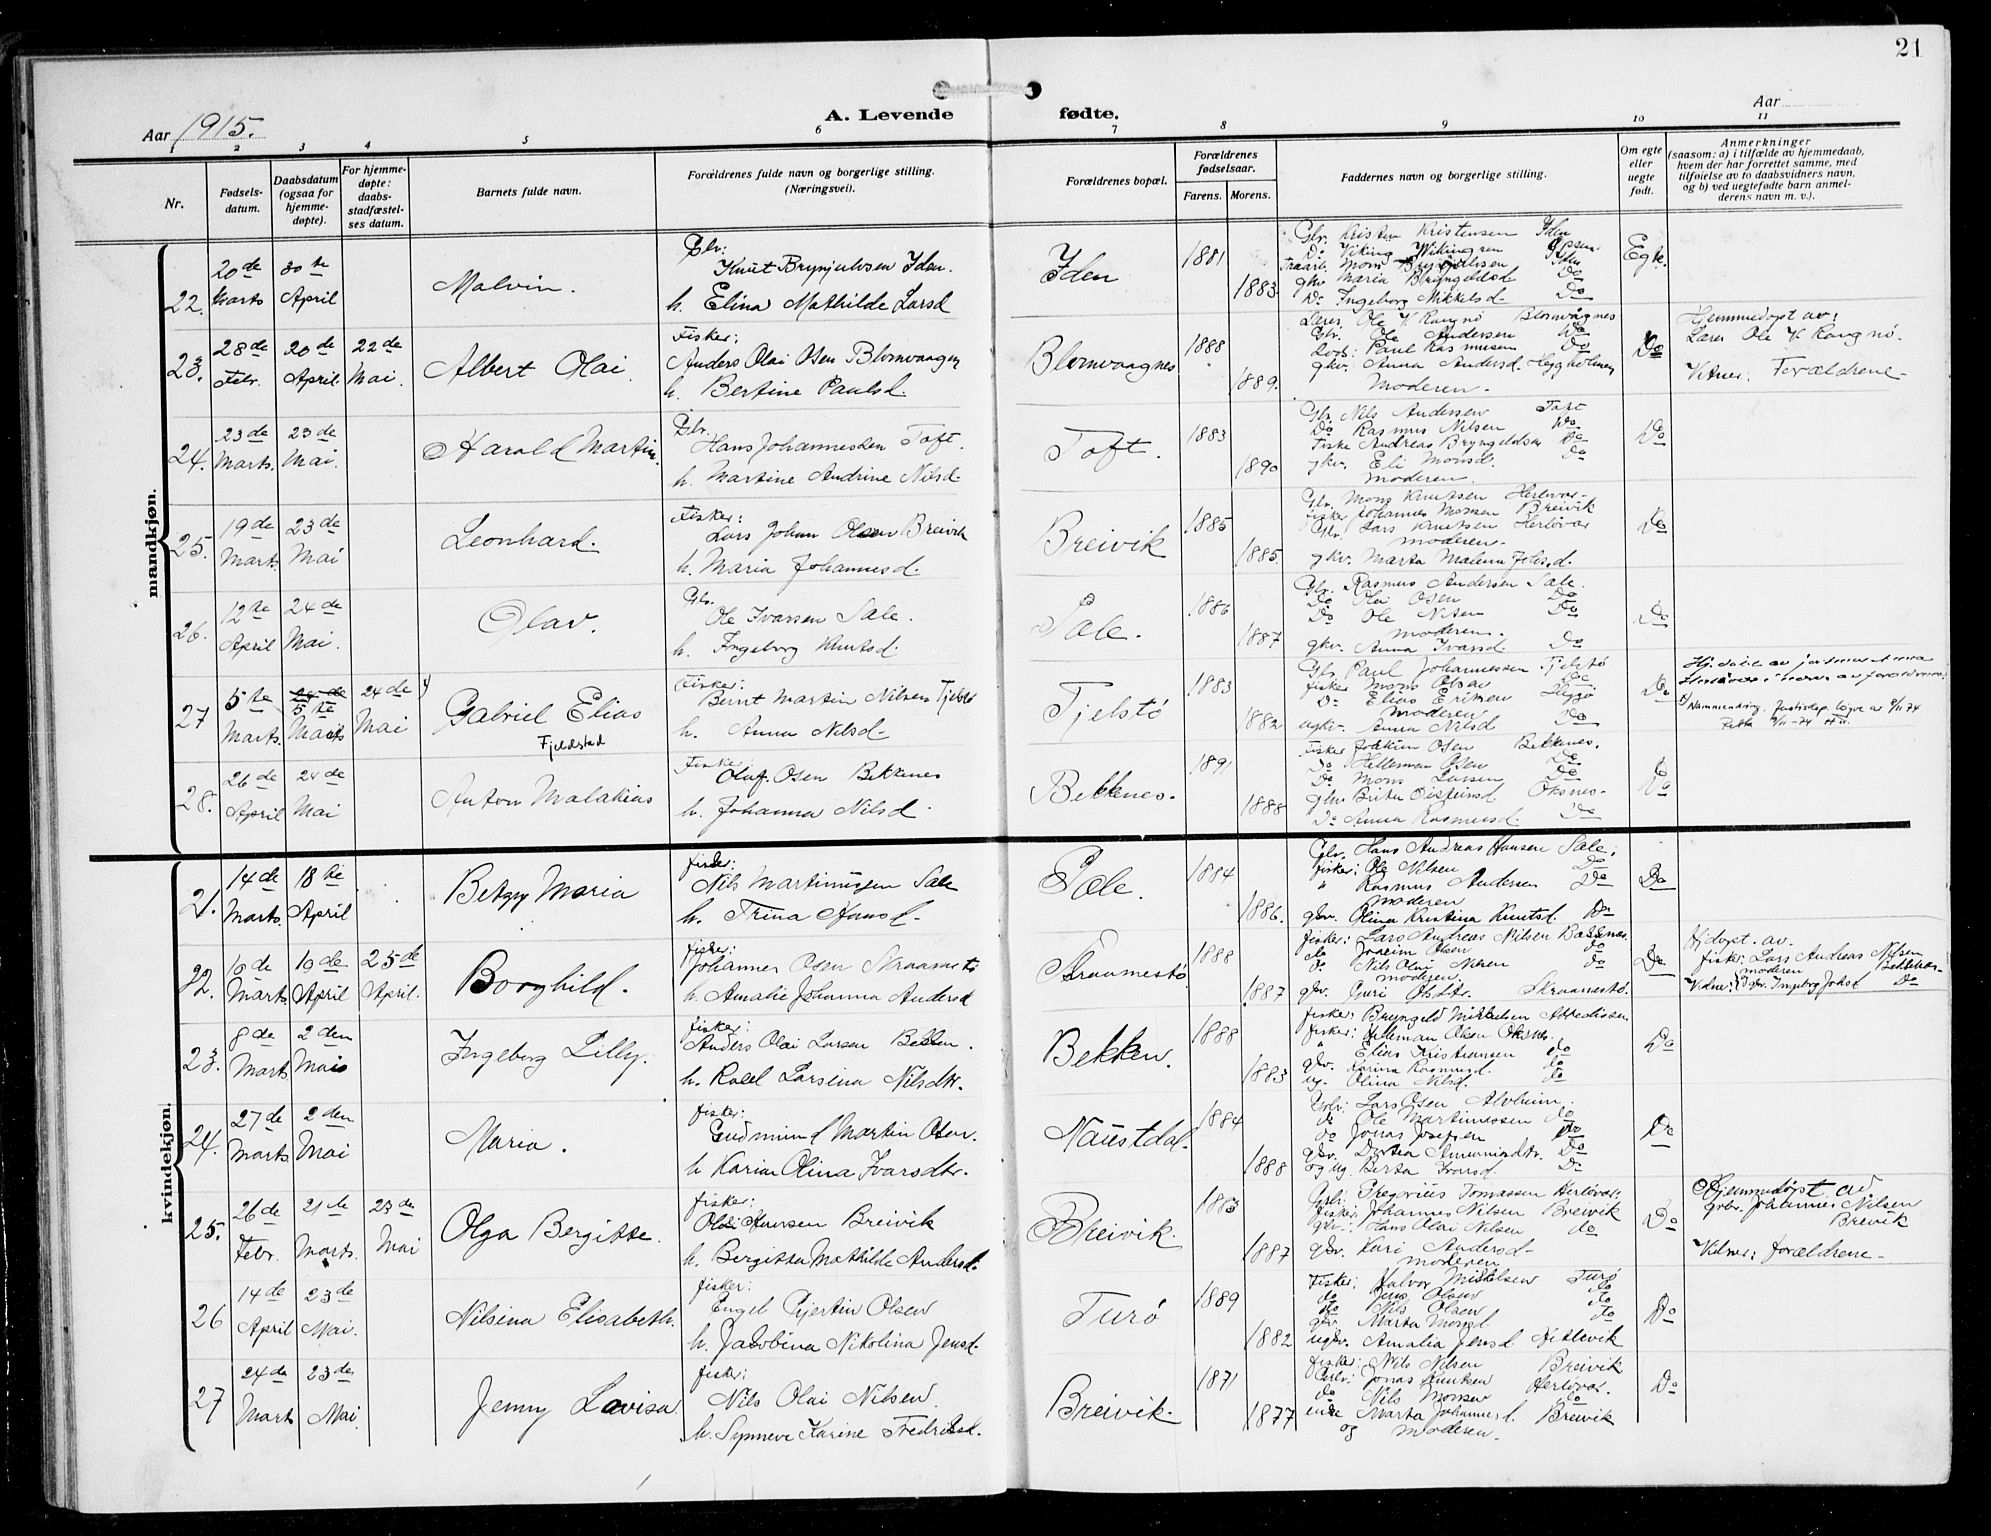 21
A. Levende fødte.
Aar 1915.
Aar
1 2 3 4 5 6 7 8 9 10 11
Nr.
Fødsels-
datum.
Daabsdatum
(ogsaa for
hjemme-
døpte).
For hjemme-
døpte:
daabs-
stadfæstel-
ses datum.
Barnets fulde navn.
Forældrenes fulde navn og borgerlige stilling.
(Næringsvei).
Forældrenes bopæl.
Forældrenes
fødselsaar.
Farens. Morens.
Faddernes navn og borgerlige stilling.
Om egte
eller
uegte
født.
Anmerkninger
(saasom: a) i tilfælde av hjemmedaab,
hvem der har forrettet samme, med
tilføielse av to daabsvidners navn,
og b) ved uegtefødte barn anmel-
derens navn m. v.).
mandkjøn.
22. 20de Marts 30te April
Malvin.
Gbr:
Knut Brynjulvsen Iden.
h. Elina Mathilde Larsd
Iden
1881
1883.
Gbr. Kristen Kristensen Iden
Do Viking Wikingsen
Mons Iden
gkv Maria Do
Do Ingeborg Mikkelsd. Do
Egte.
23. 28de Febr. 20de April 22de Mai.
Albert Olai.
Fisker:
Anders Olai Osen Blomvaagen
h. Bertine Paulsd.
Blomvaagnes
1888
1889.
Lærer Ole V. Rongnø Blomvågnes
Gbr. Ole Andersen Do
Lods: Paul Rasmusen Do
gkv. Anna Andersd. Heggholmen
Moderen.
Do
Hjemmedøpt av:
Lærer Ole V. Rongnø.
Vidner: Forældrene
24. 23de Marts. 23de Mai.
Harald Martin.
Gbr.
Hans Johannessen Toft.
h. Martine Andrine Nilsd.
Toft.
1883
1890
Gbr. Nils Andersen Toft
Do Rasmus Nilsen Do
Fisker Andreas Bryngeldsen Do
gkv. Eli Monsd. Do
Moderen.
Do
25. 19de Marts. 23de Mai
Leonhard.
Fisker:
Lars Johan Olsen Breivik
h. Maria Johannesd.
Breivik
1885
1885.
Gbr. Mons Knutsen Herløvær
Fisker Johannes Monsen Breivik
Gbr. Lars Knutsen Herløvær
moderen.
gkv. Marta Malena
Do
26. 12te April 24de Mai.
Olav.
Gbr.
Ole Ivarsen Sæle.
h. Ingeborg Knutsd.
Sæle.
1886
1887
Gbr. Rasmus Andersen Sæle.
Do Olai Osen Do
Do Ole Nilsen Do
moderen.
gkv. Anna Ivarsd Do
Do
27 5te Marts. 5te Marts 24de Mai
Gabriel Elias
Fjeldstad
Fisker:
Bernt Martin Nilsen Tjelstø
h. Anna Nilsd.
Tjelstø
1883
1882
Gbr. Paul Johannessen Tjelstø
fisker Mons Olsen Do
Do Elias Eriksen
moderen
ugkv. Anna Nilsd Do
Do
28. 26de April 24de Mai
Anton Malakias
Fisker
Oluf Osen Bekknes
h. Johanna Nilsd.
Bekknes.
1891
1888
Fisker Joakim Osen Bekknes.
Do Helleman Osen Do
Do Mons Larsen Do
gkv Brita Oisteinsd Oksnes
Do Anna Rasmusd. Do
Do
kvindekjøn.
21. 14de Marts 18te April
Betzy Maria
fisker:
Nils Martinussen Sæle
h. Trina Hansd.
Sæle.
1884
1886.
Gbr. Hans Andreas Hansen Sæle.
fisker: Ole Nilsen Do
" Rasmus Andersen Do
moderen
gkv. Olina Kristina Knutsd. Do
Do
22. 10de Marts 19de April 25de April.
Borghild.
fisker:
Johannes Osen Skraamestø
h. Amalie Johanna Andersd
Skraamestø
1888
1887
fisker: Lars Andreas Nilsen Bekknes.
do Joakim Olsen do
do Nils Olai Nilsen do
moderen
gkv. Guri Skraamestø.
Do
Hjdøpt. av.
fisker: Lars Andreas Nilsen
Bekknes.
moderen
Vidner: gkv. Ingeborg Johsd Do
23. 8de Marts 2den Mai
Ingeborg Lilly.
fisker:
Anders Olai Larsen Bekken.
h. Larsina Nilsdtr.
Bekken.
1888
1883
fisker: Bryngeld Mikkelsen
fisker: Helleman Olsen Oksnes.
" Elias Kristiansen do
gkv. Karina Rasmusd. do
ug. Olina Nilsd. do
Do
24. 27de Marts. 2den Mai
Maria.
fisker:
Gudmund Martin Osen.
h Karina Olina Ivarsdtr.
Naustdal.
1884
1888
Gbr: Lars Osen Alvheim.
do Ole Martinussen do
do Jonas Josefsen do
gkv. Dortea Do
og ug. Berta Ivarsd. Do
Do
25. 26de Febr. 21de Marts. 23de Mai
Olga Bergitte.
fisker:
Olai Breivik
h. Bergitta Mathilde Andersd.
Breivik.
1883
1887
Gbr: Gregorius Tomassen Herløvær.
fisker. Johannes Nilsen Breivik
gbr: Hans Olai Nilsen do
gkv. Kari Andersd.
moderen
Do
Hjemmedøpt av
gbr. Johannes Nilsen
Breivik
Vidner: forældrene.
26 14de April 23de Mai.
Nilsina Elisabeth.
fisker:
Engel Gjertin Olsen
h. Jacobina Nikolina Jensd.
Turø
1889
1882
Fisker: Halvor Mikkelsen Turø
do Jens Olsen do
do Nils Olsen do
gkv. Marta Monsd
ugkv. Amalia Jensd
Do
27 24de Marts 23de Mai
Jenny Lovisa
fisker:
Nils Olai Nilsen.
h. Synneve Karine Fredriksd.
Breivik.
1871
1877
fisker: Nils Nilsen Breivik
Gbr: Jonas Knutsen Herløvær.
do Nils Monsen do
enke Marta Johannesd. Breivik
og moderen.
Do